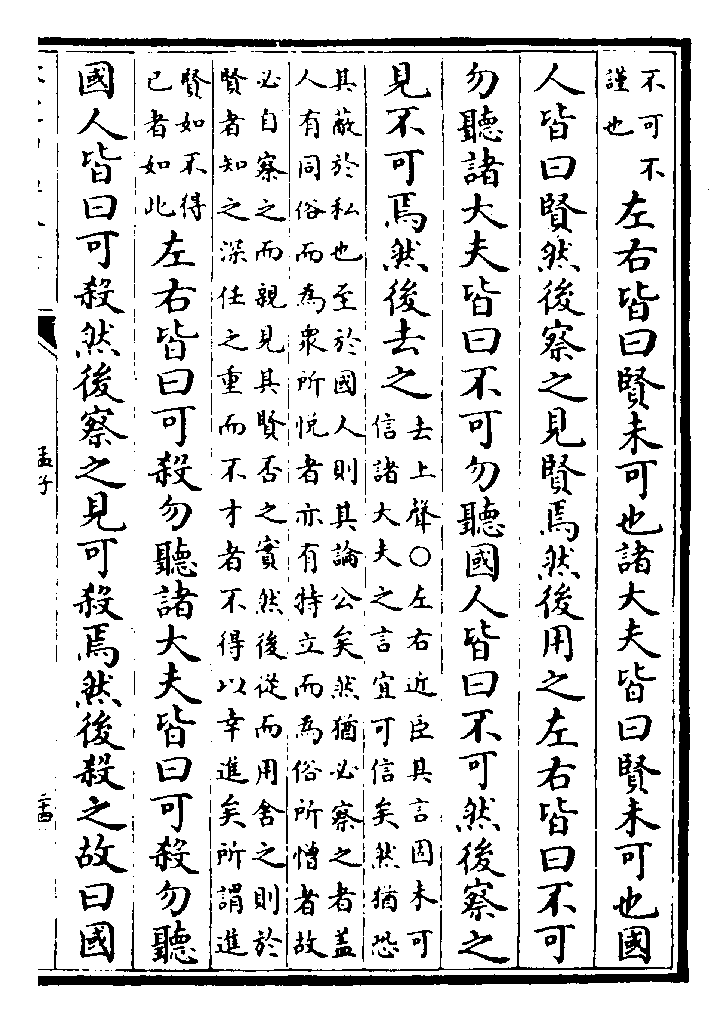 不可不
謹也
左右皆曰賢未可也諸大夫皆曰賢未可也國
人皆曰賢然後察之見賢焉然後用之左右皆曰不可
勿聽諸大夫皆曰不可勿聽國人皆曰不可然後察之
見不可焉然後去之
去上聲○左右近臣其言固未可
信諸大夫之言宜可信矣然猶恐
其蔽於私也至於國人則其論公矣然猶必察之者蓋
人有同俗而為衆所悅者亦有特立而為俗所憎者故
必自察之而親見其賢否之實然後從而用舍之則於
賢者知之深任之重而不才者不得以幸進矣所謂進
賢如不得
已者如此
左右皆曰可殺勿聽諸大夫皆曰可殺勿聽
國人皆曰可殺然後察之見可殺焉然後殺之故曰國
孟子